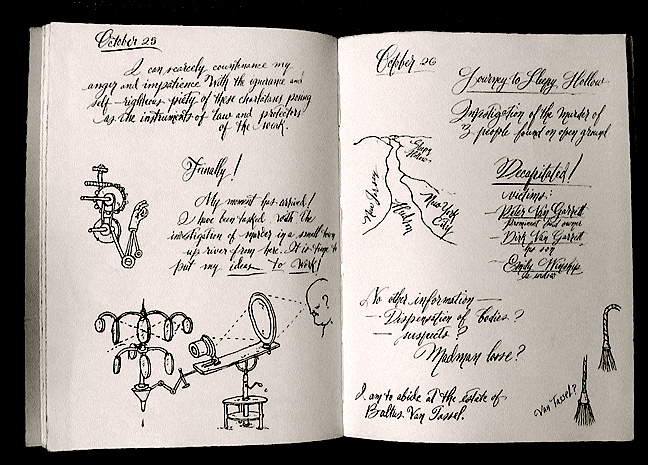 October 25
I can scarcely countenance my
anger and impatience with the ignorance and
self-righteous piety of these charlatans posing
as the instruments of law and protectors
of the work.
Finally!
My moment has arrived!
I have been tasked with the
investigation of murder in a small town
up river from here. It is time to
put my ideas to work!
?
October 26
Journey to Sleepy Hollow
Investigation of the murder of
3 people found on open ground
Sleepy
Hollow
New Jersey
Hudson
New York
City
Decapitated!
victims:
Peter Van Garrett
prominent land owner
Dirk Van Garrett
his son
Emily Winship
the widow
No other information—
— Dispensation of bodies?
— suspects?
Madman loose?
I am to abide at the estate of
Baltus Van Tassel.
Van Tassel?